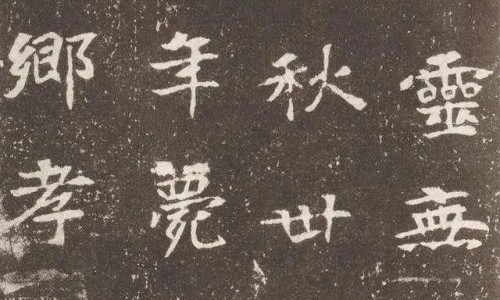 靈無
秋卅
年薨
鄉孝